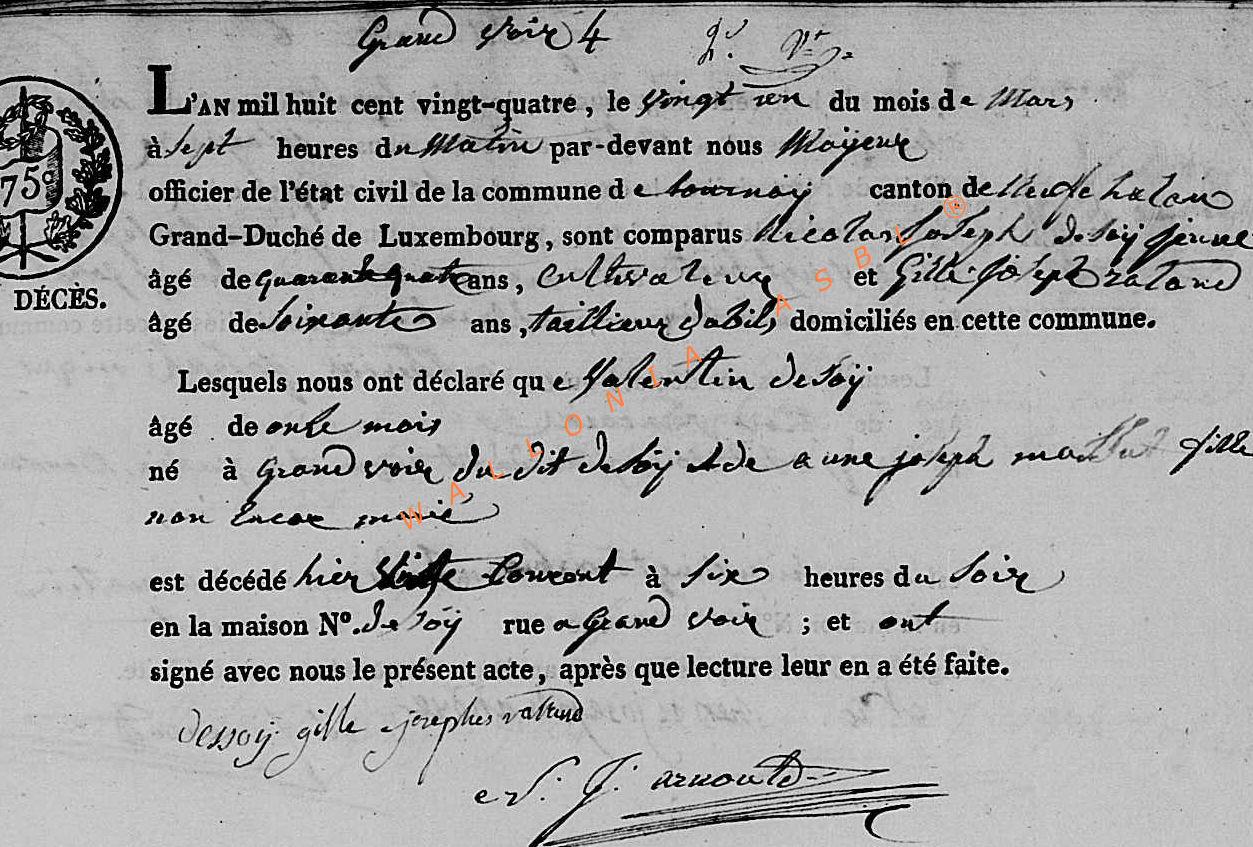 Grand voir 4
L'AN mil huit cent vingt-quatre, le vingt un du mois de Mars
à sept heures du Matin par-devant nous Mayeur
officier de l'état civil de la commune de tournay canton de Neufchatau
Grand-Duché de Luxembourg, sont comparus Nicolas Joseph desoÿ jeune
âgé de quarante quatre ans, cultivateur et Gille joseph
75c
âgé de soixante ans, taillieur dabils domiciliés en cette commune.
DÉCÈS.
Lesquels nous ont déclaré que Valentin desoÿ
âgé de onse mois
né à Grand voir du dit desoÿ et de anne joseph fille
non encor marié
est décédé hier courant à six heures du soir
en la maison N°. desoÿ rue a grand voir ; et ont
signé avec nous le présent acte, après que lecture leur en a été faite.
dessoÿ gille josephes
J. arnould
WALLONIA ASBL ®